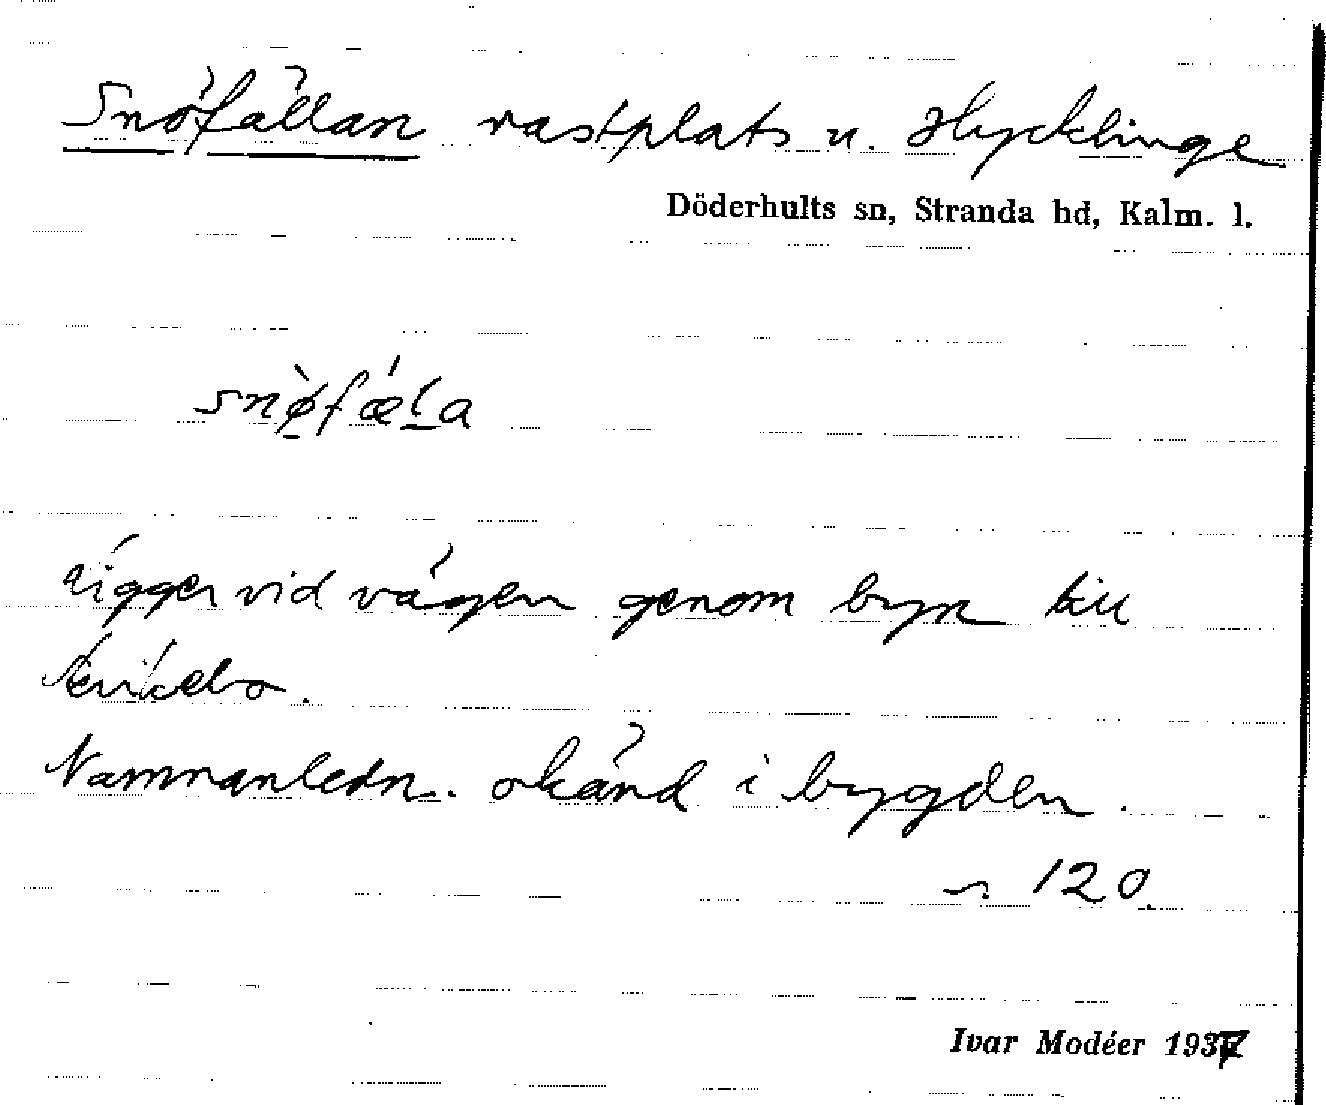 Snöfällan rastplats u. Hycklinge
Döderhults sn, Stranda hd, Kalm. l.
snø̀fæ´l̲a
ligger vid vägen genom byn till
Namnanledn. okänd i bygden.
120.
Ivar Modéer 1937